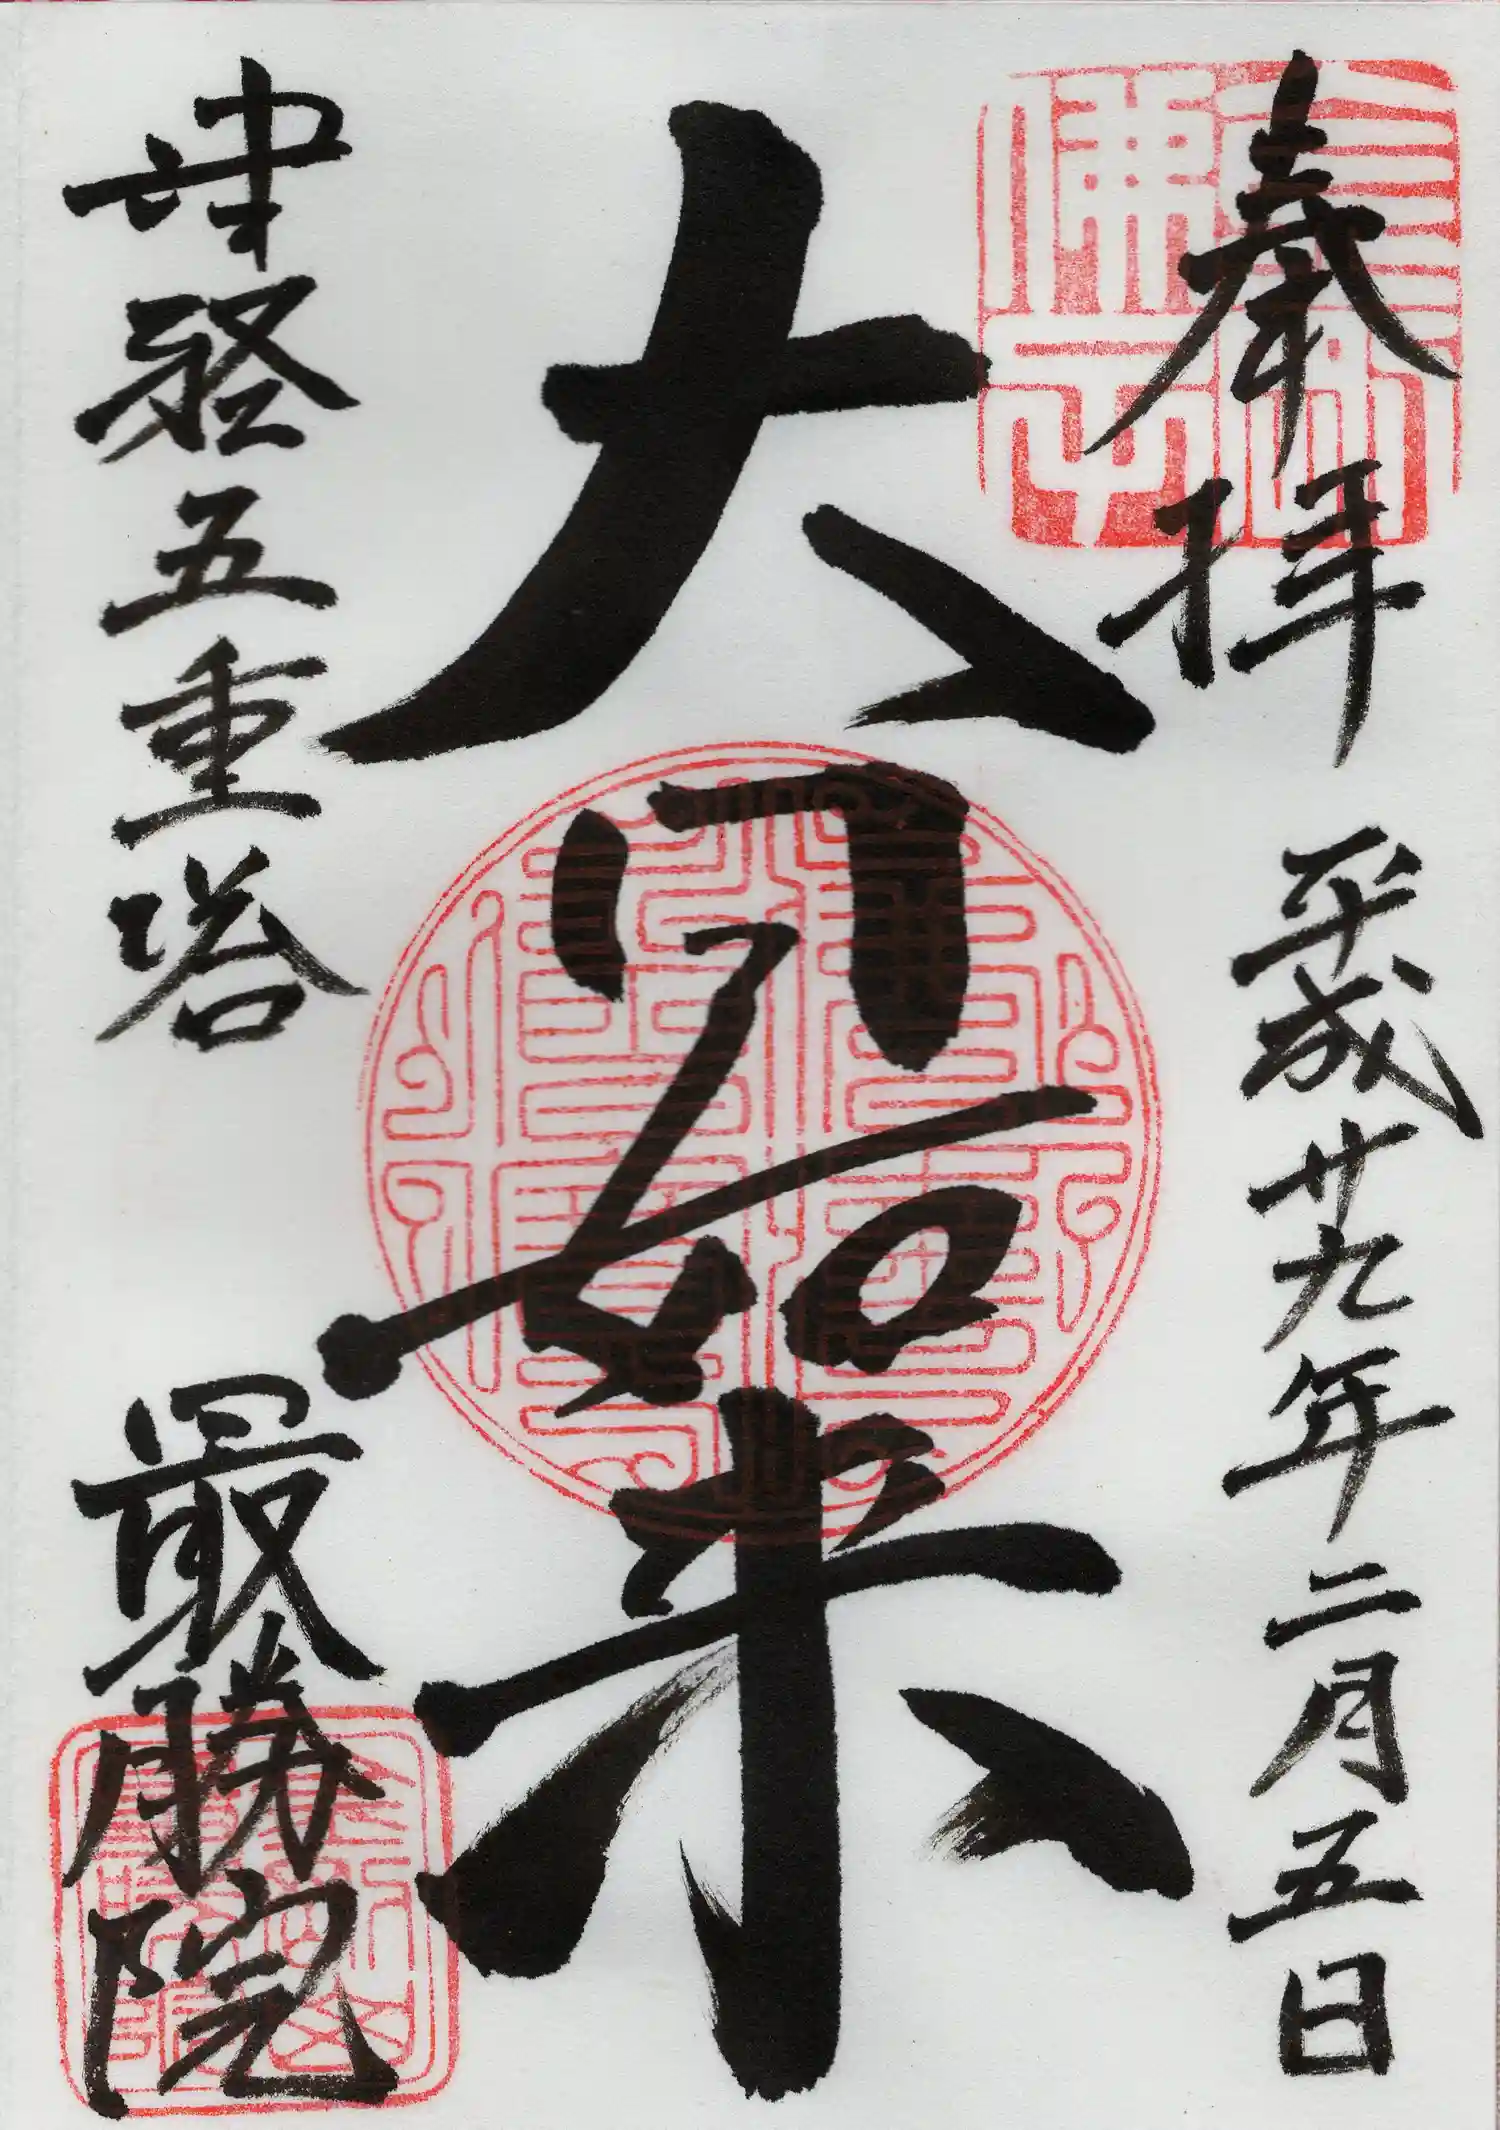 奉拝 平成廿九年二月五日
金剛佛子
大日如来
津軽五重塔
最勝院